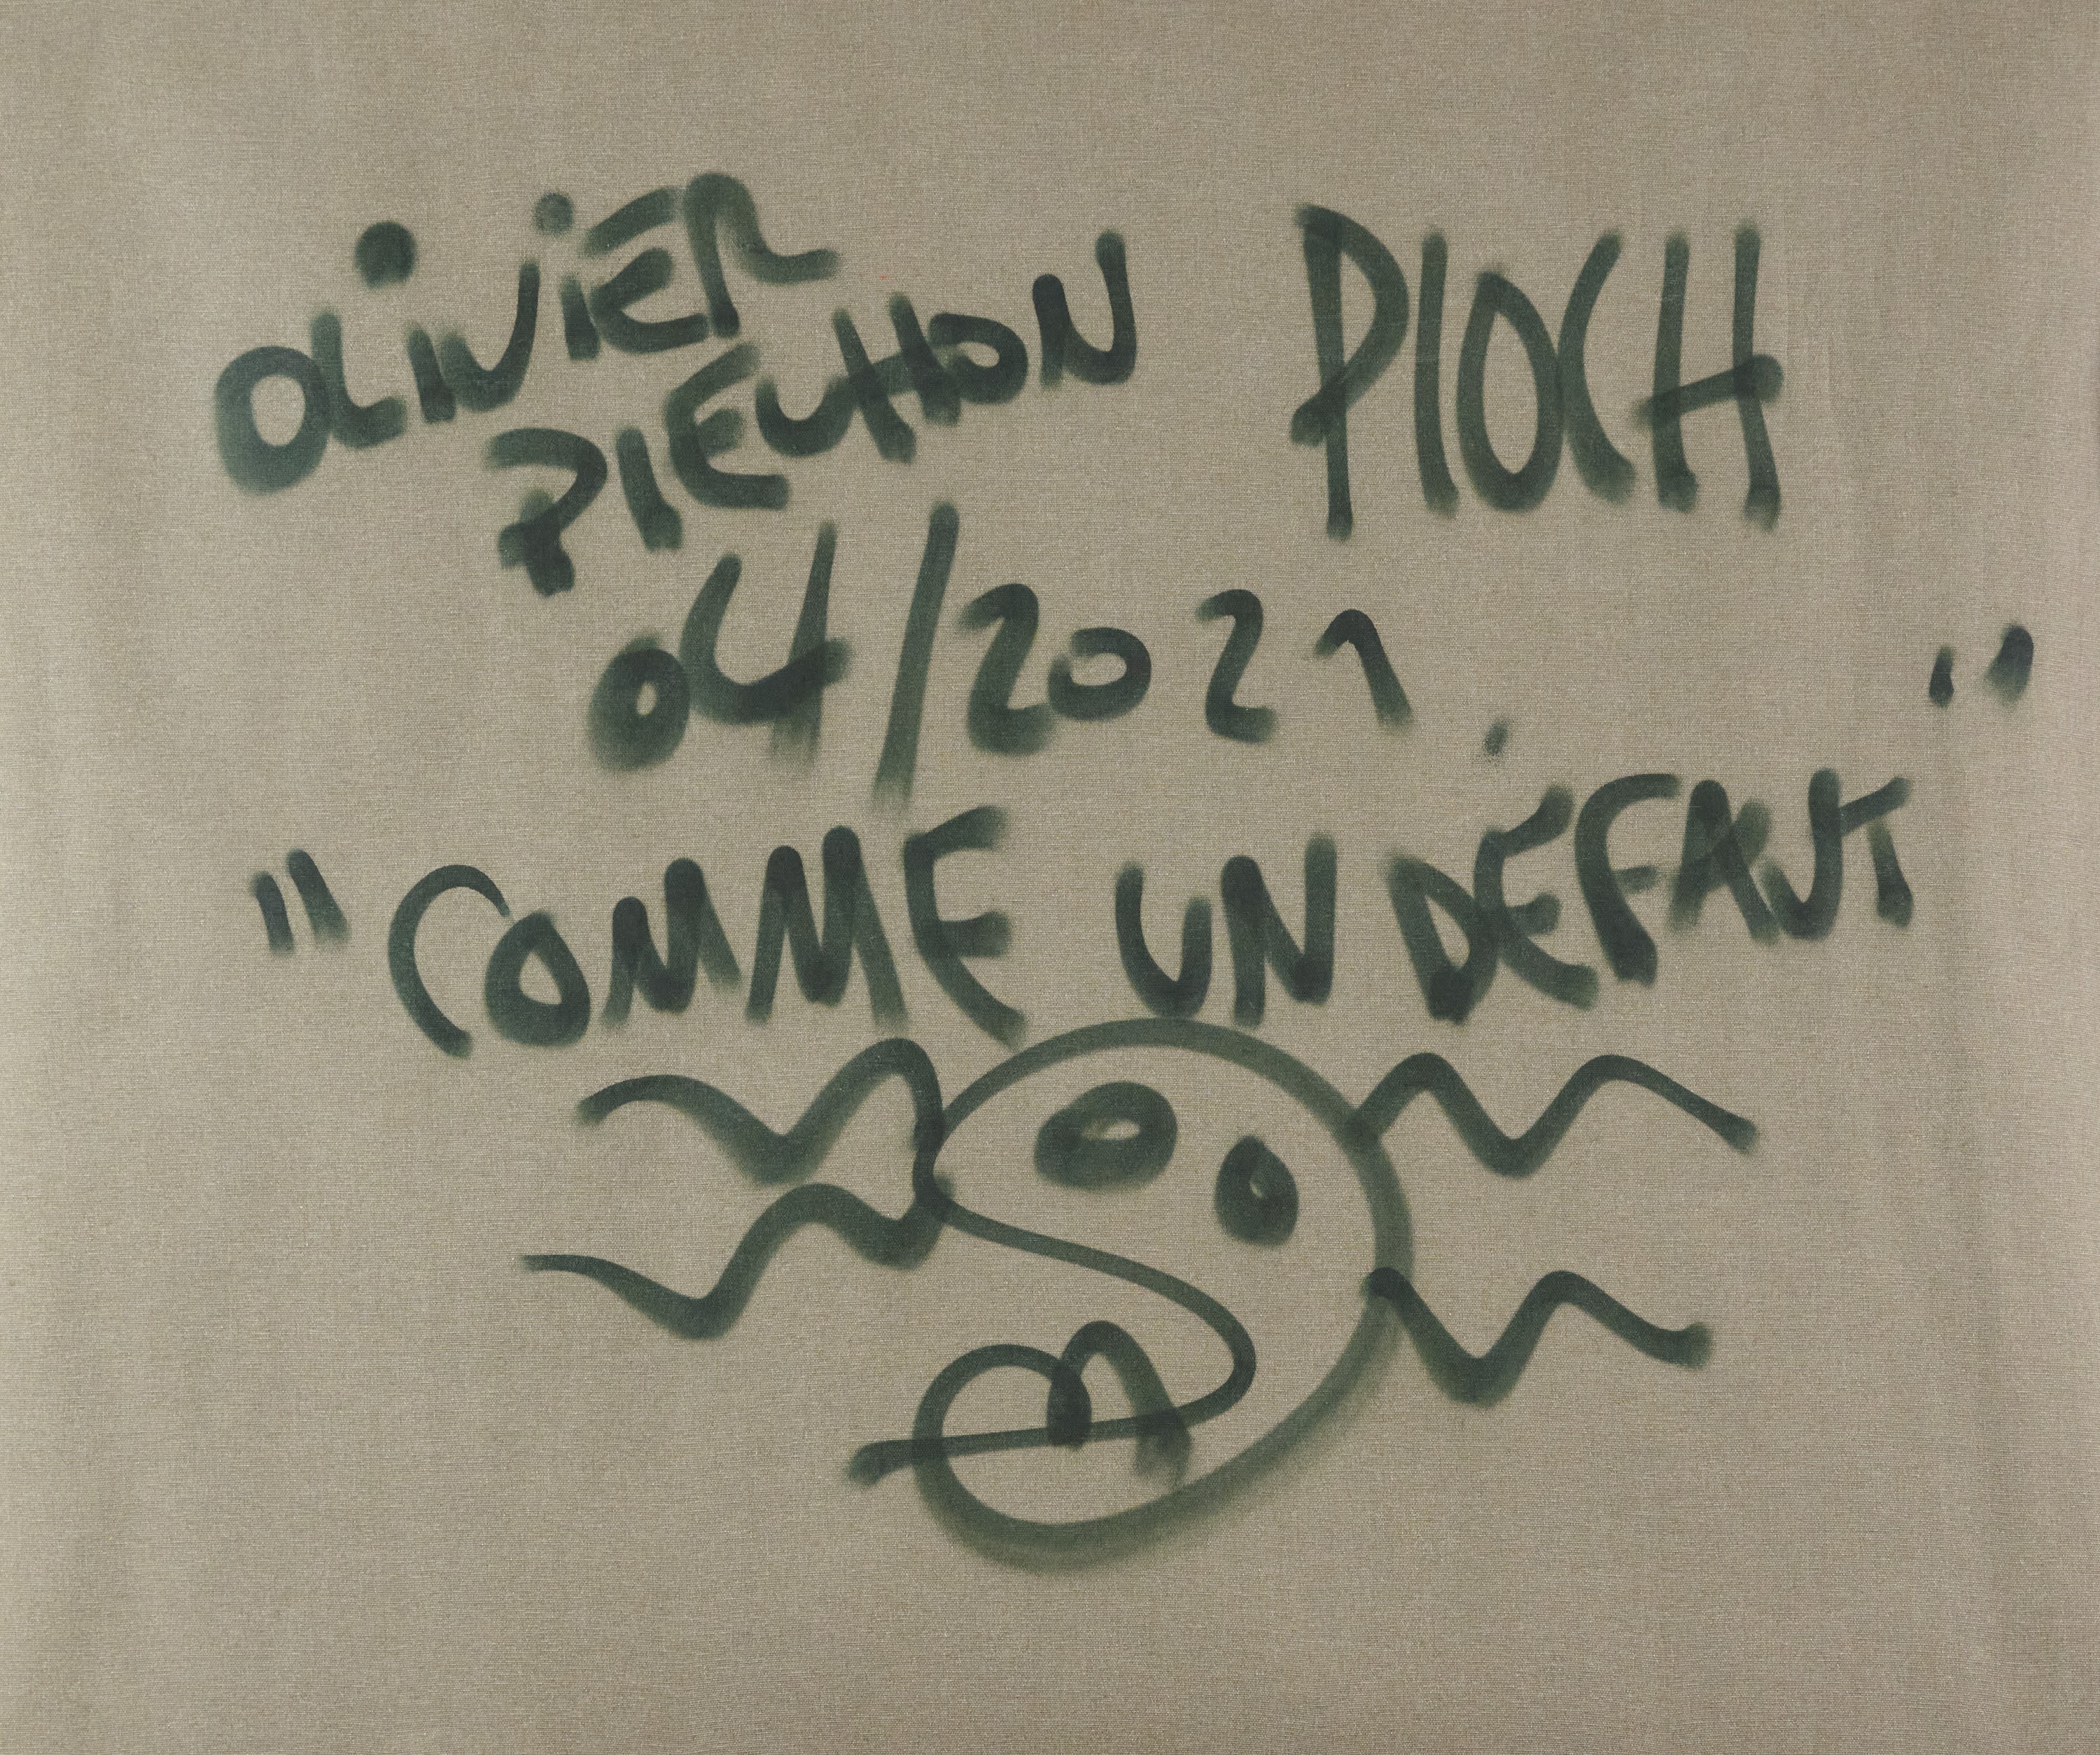 OLiViER PIOCH
PIECHON
04/2021.
"COMME UN DÉFAUT"